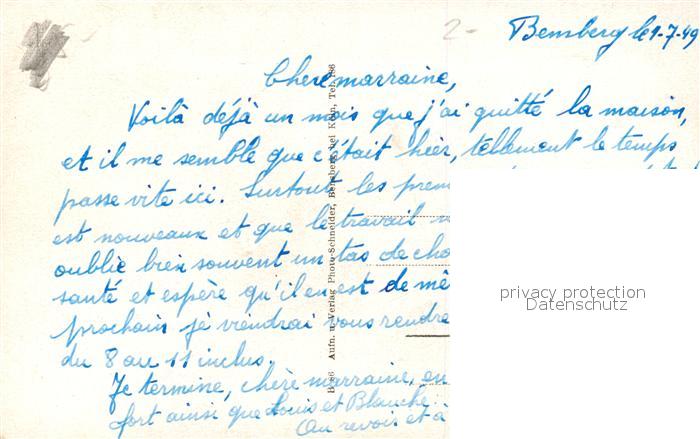 2-
Bensberg le 1-7-49
Chère marraine,
Voilà déjà un mois que j'ai quitté la maison,
et il me semble que c'était hier, tellement le temps
passe vite ici. Surtout les prem
est nouveaux et que le travail
oublie bien souvent un tas de cho
santé et espère qu'il en est de mê
prochain je viendrai vous rendre
du 8 au 11 inclus.
Je termine, chère marraine, en
fort ainsi que Louis et Blanche.
Au revoir et à
B 86 Aufn. u. Verlag Photo-Schneider, Bensberg bei Köln, Tel.
privacy protection
Datenschutz